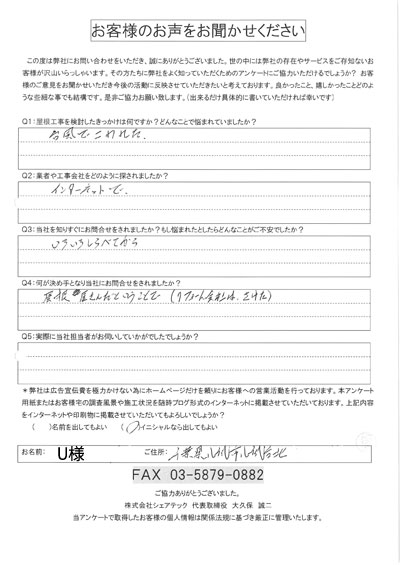 お客様のお声をお聞かせください
この度は弊社にお問い合わせをいただき、誠にありがとうございました。世の中には弊社の存在やサービスをご存知ないお
客様が沢山いらっしゃいます。その方たちに弊社をよく知っていただくためのアンケートにご協力いただけるでしょうか？ お客
様のご意見をお聞かせいただき今後の活動に反映させていただきたいと考えております。良かったこと、嬉しかったことどのよ
うな些細な事でも結構です。是非ご協力お願い致します。（出来るだけ具体的に書いていただければ幸いです）
Q1：屋根工事を検討したきっかけは何ですか？どんなことで悩まれていましたか？
台風でこわれた.
Q2：業者や工事会社をどのように探されましたか？
インターネットで.
Q3：当社を知りすぐにお問合せをされましたか？もし悩まれたとしたらどんなことがご不安でしたか？
いろいろしらべてから
Q4：何が決め手となり当社にお問合せをされましたか？
屋根屋さんだということで（リフォーム会社は、さけた）
Q5：実際に当社担当者がお伺いしていかがでしたでしょうか？
＊弊社は広告宣伝費を極力かけない為にホームページだけを頼りにお客様への営業活動を行っております。本アンケート
用紙またはお客様宅の調査風景や施工状況を随時ブログ形式のインターネットに掲載させていただいております。上記内容
をインターネットや印刷物に掲載させていただいてもよろしいでしょうか？
（　）名前を出してもよい　（○）イニシャルなら出してもよい
お名前： U様 ご住所： 千葉県八千代市八千代台北
FAX 03-5879-0882
ご協力ありがとうございました。
株式会社シェアテック 代表取締役 大久保 誠二
当アンケートで取得したお客様の個人情報は関係法規に基づき厳正に管理いたします。